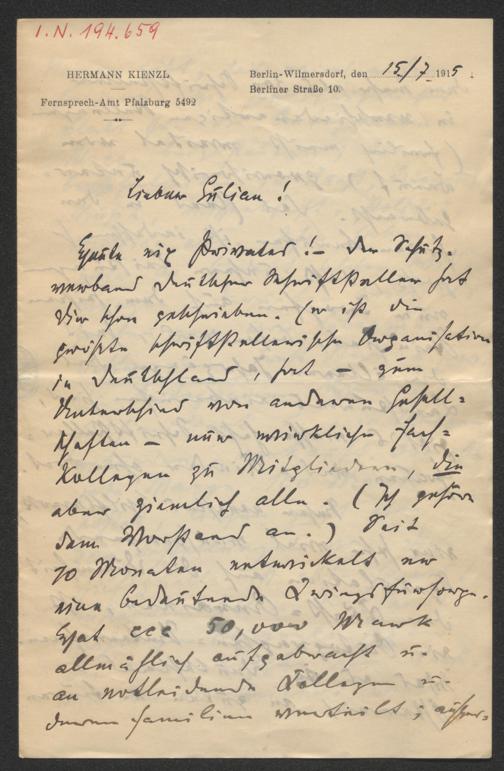 I.N. 194.659
HERMANN KIENZL
Fernsprech-Amt Pfalzburg 5492
Berlin-Wilmersdorf, den 15/7 1915.
Berliner Straße 10.
Lieber Gilian!
Heute nix Privates! – Der Schutz-
verband deutscher Schriftsteller hat
Dir schon geschrieben. (Er ist die
größte schriftstellerische Organisation
in Deutschland, hat – zum
Unterschied von anderen Gesell-
schaften – nur wirkliche Fach-
kollegen zu Mitgliedern, die
aber ziemlich alle. (Ich gehöre
dem Vorstand an.) Seit
10 Monaten entwickelt er
eine bedeutende Kriegsfürsorge.
Hat 50,000 Mark
allmählich aufgebracht u.
an notleidende Kollegen u.
deren Familien verteilt; außer-